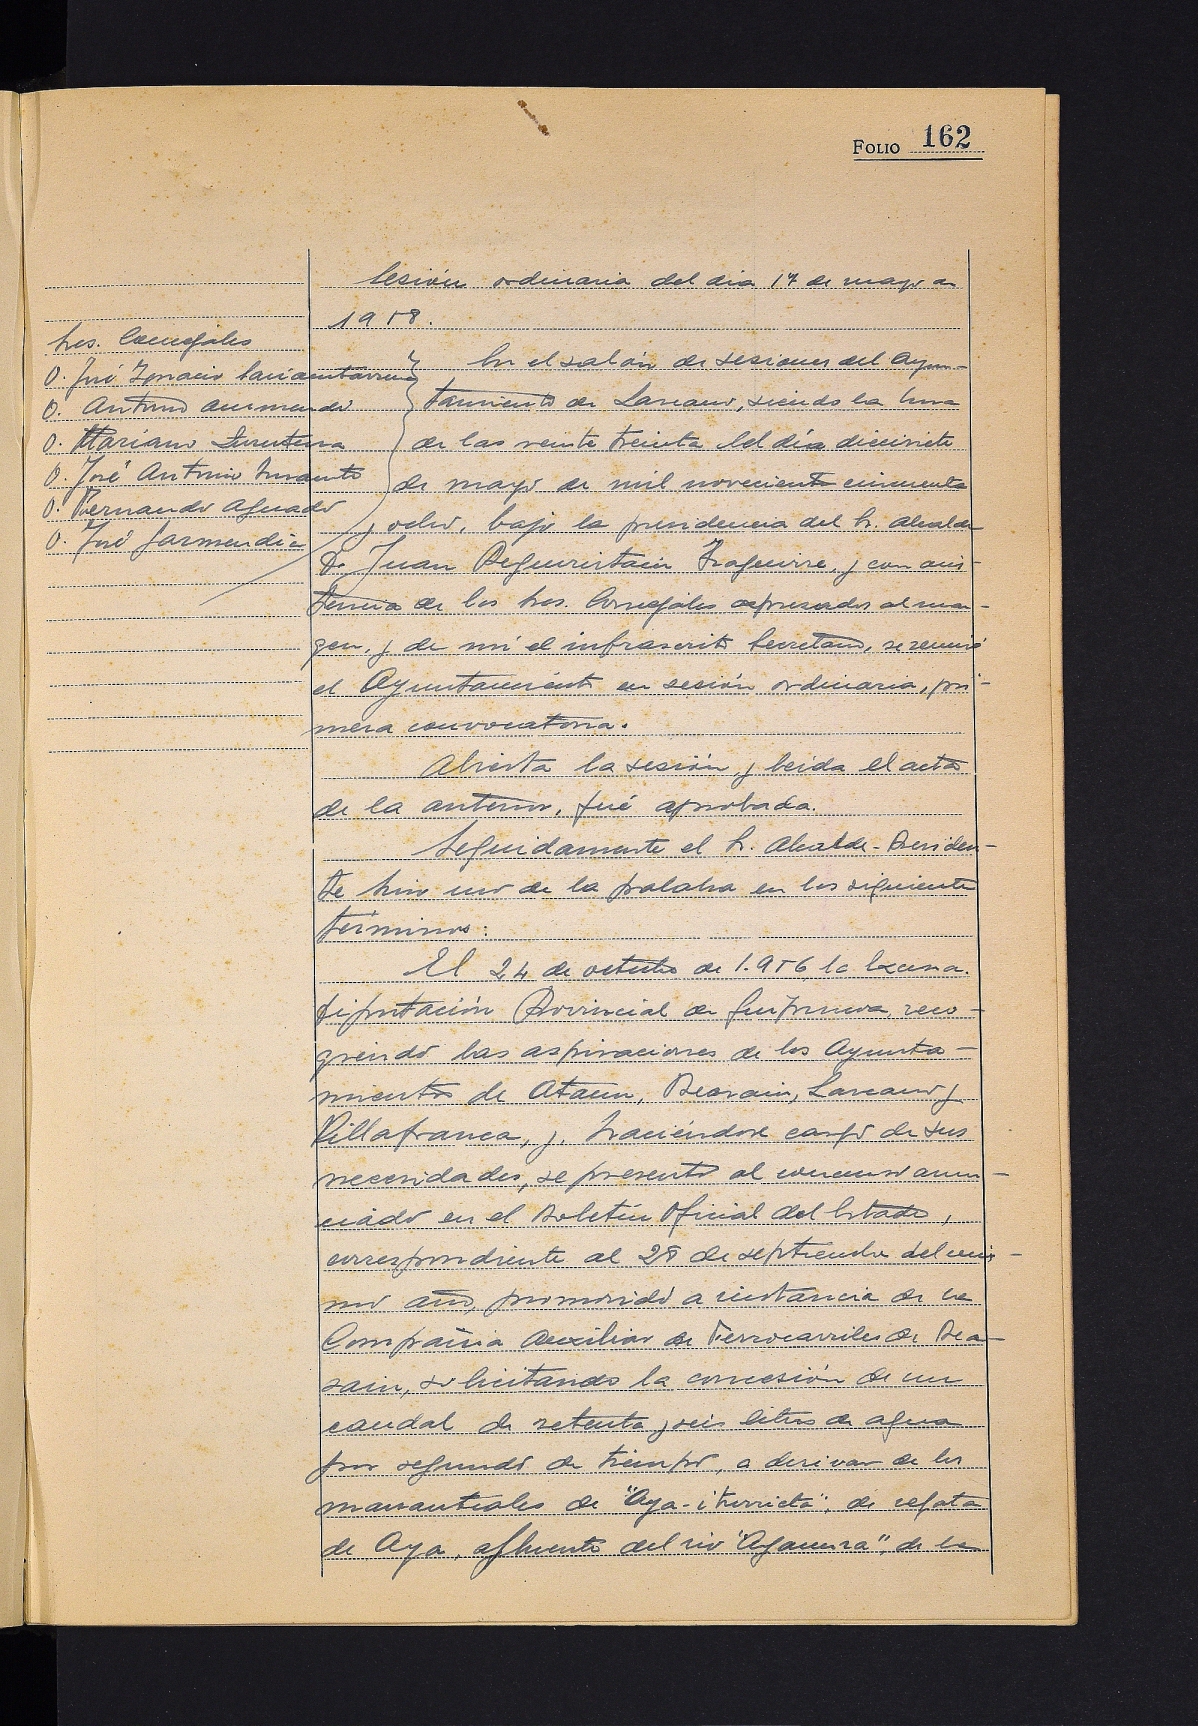 FOLIO 162
Sesión ordinaria del dia 17 de mayo de
1958.
Sres. Concejales
D. José Ignacio
D. Antonio Aurmendi
D. Mariano
D. José Antonio
D. Fernando Aguado
D. José Garmendia
En el salón de sesiones del Ayun-
tamiento de Lazcano, siendo la hora
de las veinte treinta del día diecisiete
de mayo de mil novecientos cincuenta
y ocho, bajo la presidencia del Sr. Alcalde
D. Juan Beguiristain Izaguirre, y con asis-
tencia de los Sres. Concejales expresados al mar-
gen, y de mí el infrascrito Secretario, se reunió
el Ayuntamiento en sesión ordinaria, pri-
mera convocatoria.
Abierta la sesión, y leida el acta
de la anterior, fué aprobada.
Seguidamente el Sr. Alcalde-Presiden-
te hizo uso de la palabra en los siguientes
términos:
El 24 de octubre de 1.956, la Excma.
Diputación Provincial de Guipuzcoa, reco-
giendo las aspiraciones de los Ayunta-
mientos de Ataun, Beasain, Lazcano y
Villafranca, y, haciéndose cargo de sus
necesidades, se presentó al concurso anun-
ciado en el Boletín Oficial del Estado,
correspondiente al 28 de septiembre del mis-
mo año, promovido a instancia de la
Compañia Auxiliar de Ferrocarriles de Bea-
sain, solicitando la concesión de un
caudal de setenta y seis litros de agua
por segundo de tiempo, a derivar de los
manantiales de "Aya-iturrieta", de regata
de Aya, afluente del rio "Agaunza", de la